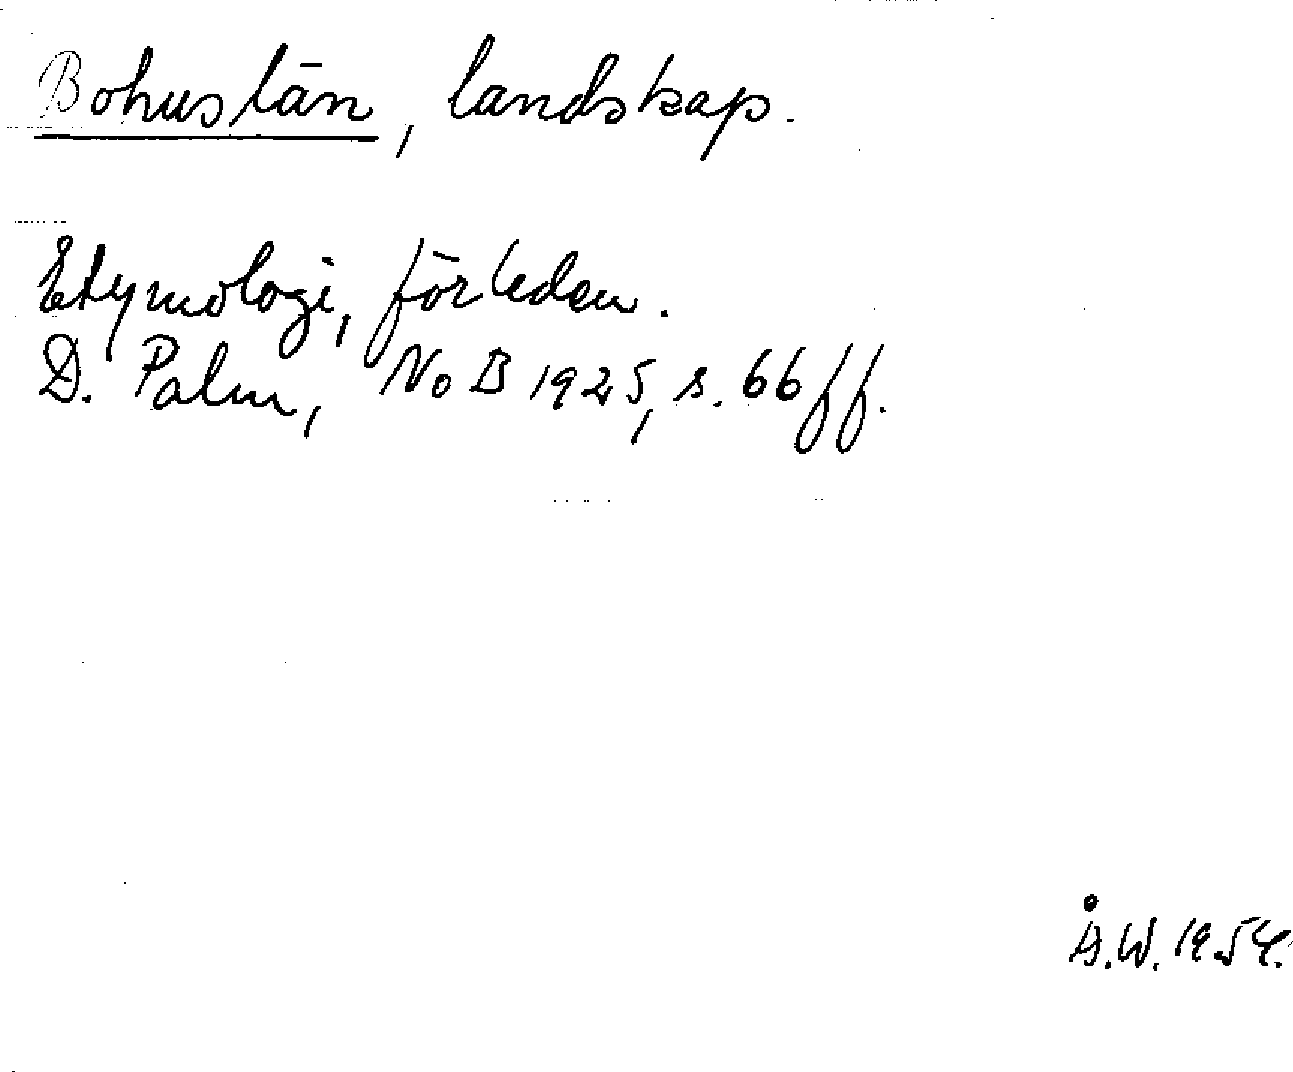 Bohuslän, landskap.
Etymologi, förleden.
D. Palm, NoB 1925, s. 66 ff.
Å.W. 1954.